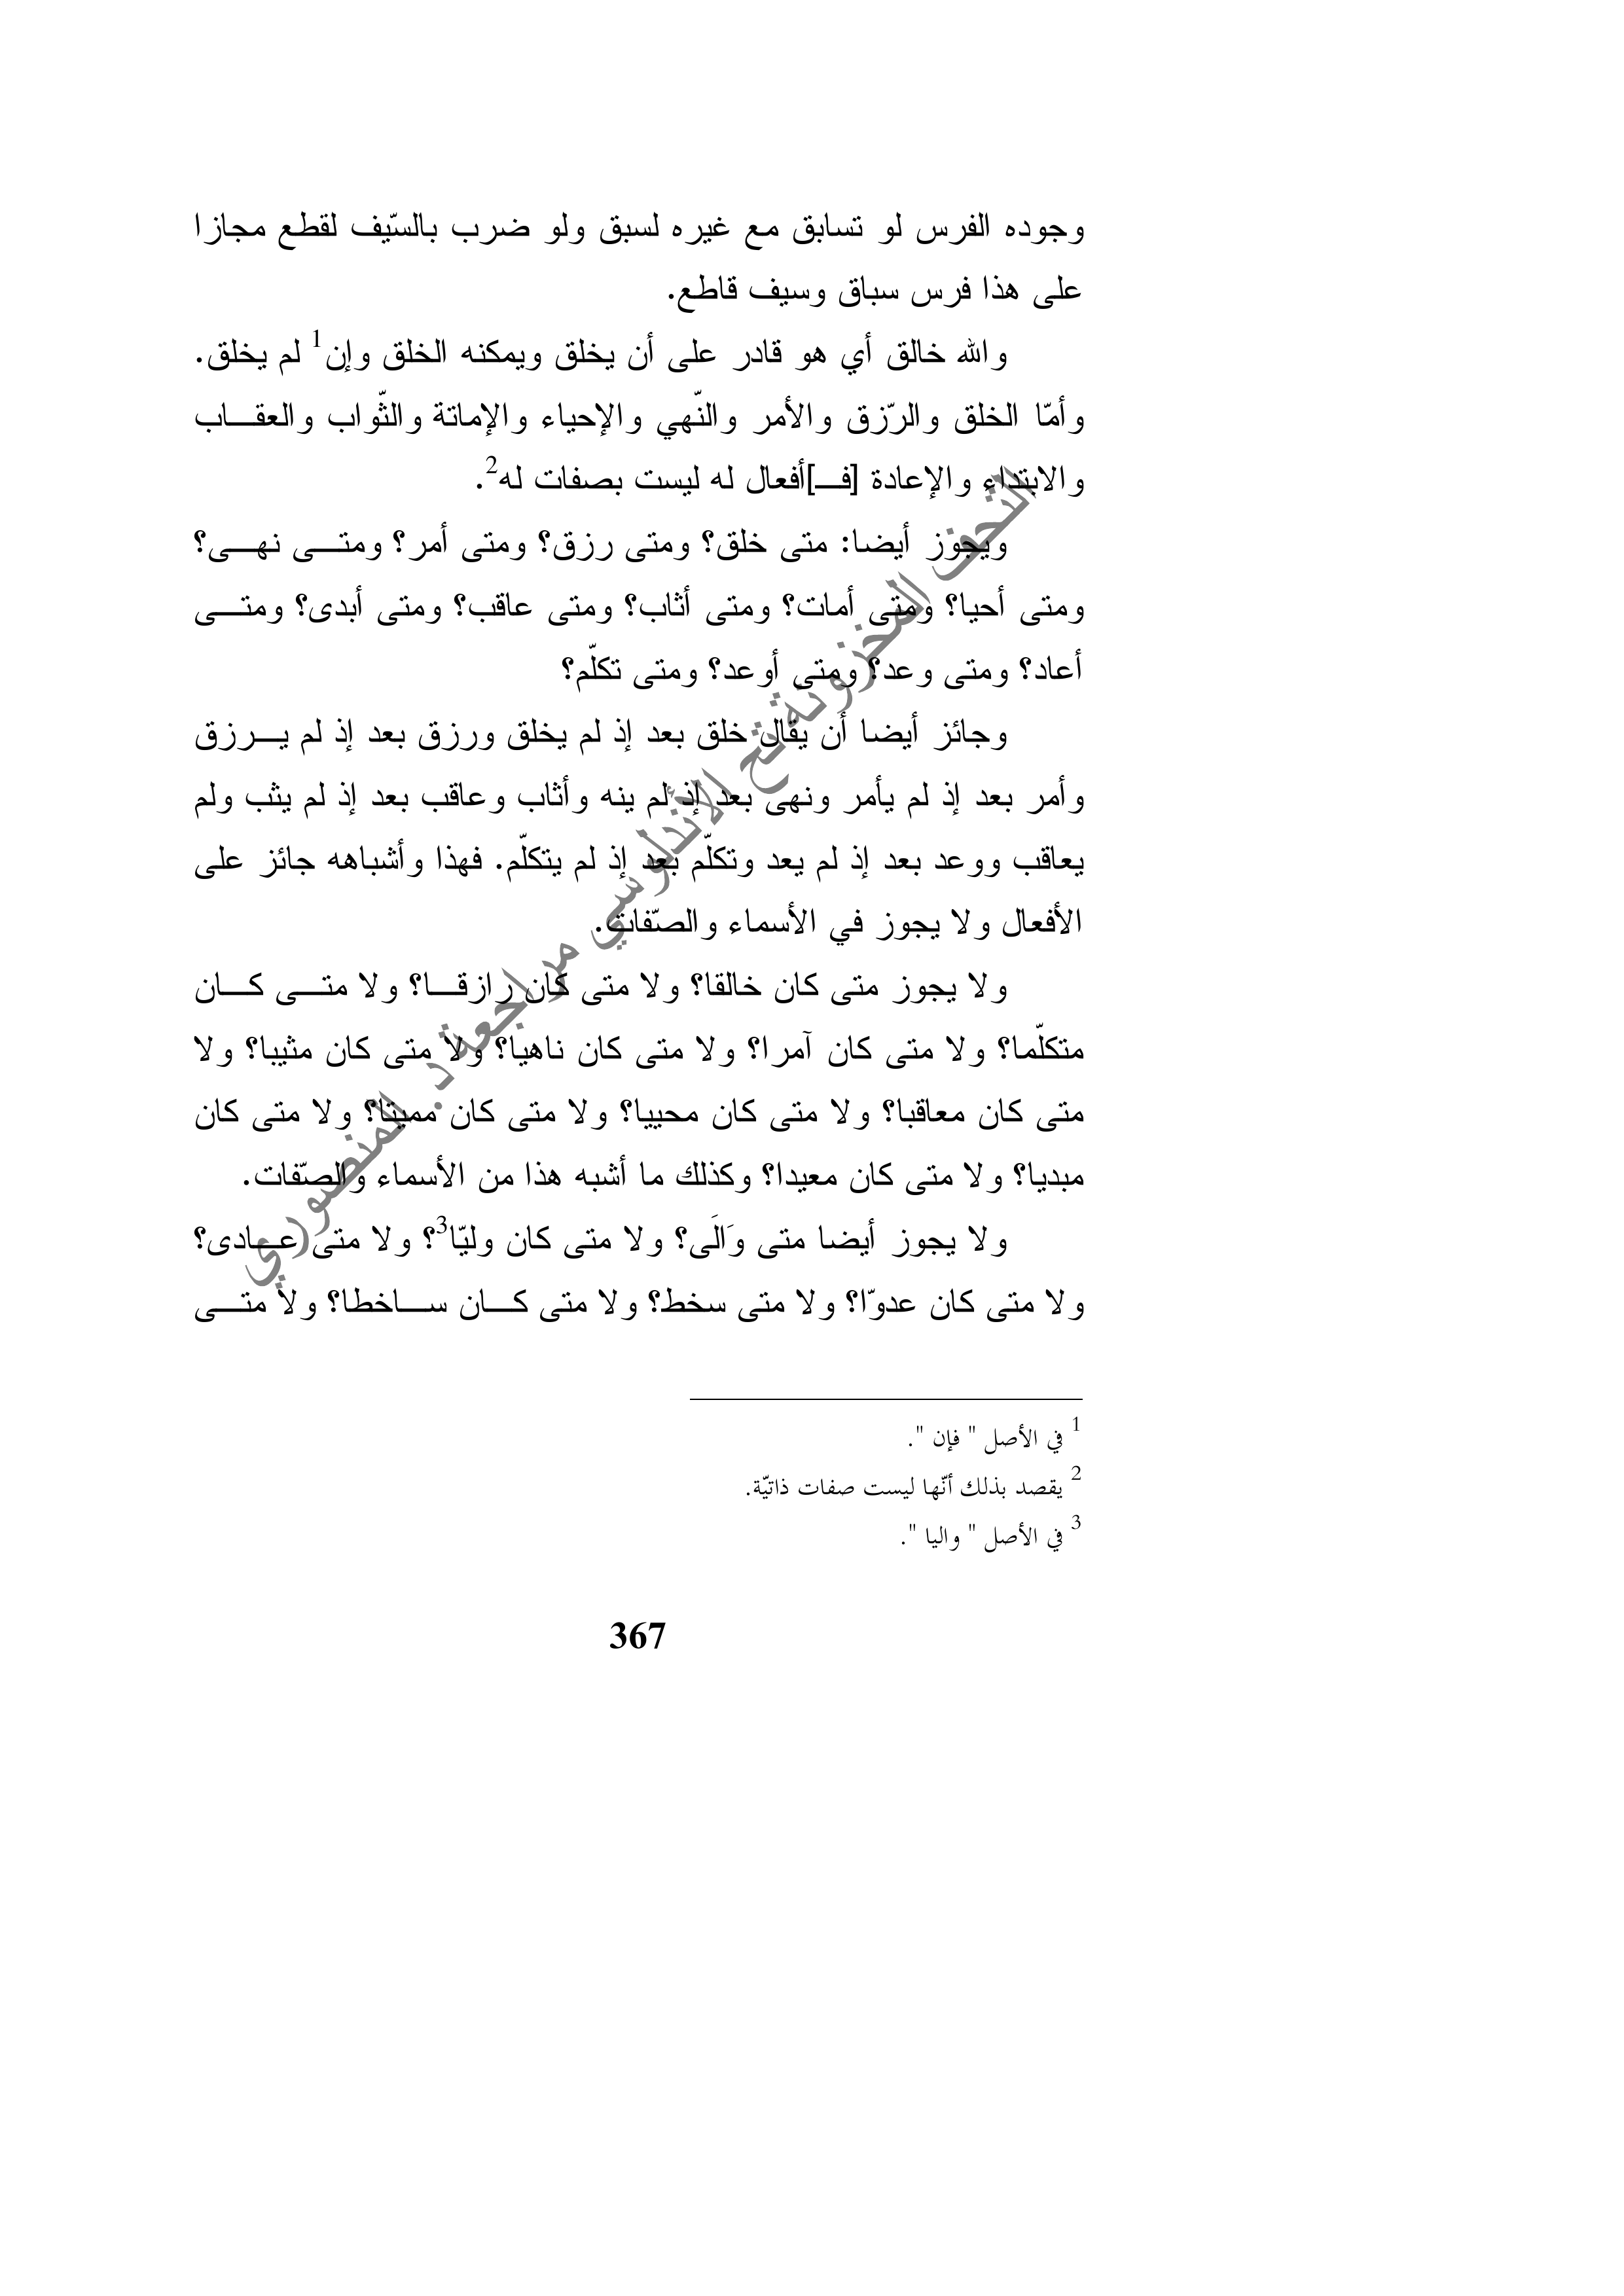 وجوده الفرس لو تسابق مع غيره لسبق ولو ضرب بالسّيف لقطع مجازا
على هذا فرس سباق وسيف قاطع.
والله خالق أي هو قادر على أن يخلق ويمكنه الخلق وإن1 لم يخلق.
وأمّا الخلق والرّزق والأمر والنّهي والإحياء والإماتة والثّواب والعقـــاب
والابتداء والإعادة [فــ]أفعال له ليست بصفات له2.
ويجوز أيضا: متى خلق؟ ومتى رزق؟ ومتى أمر؟ ومتـــى نهـــى؟
ومتى أحيا؟ ومتى أمات؟ ومتى أثاب؟ ومتى عاقب؟ ومتى أبدى؟ ومتـــى
أعاد؟ ومتى وعد؟ ومتى أوعد؟ ومتى تكلّم؟
وجائز أيضا أن يقال خلق بعد إذ لم يخلق ورزق بعد إذ لم يـــرزق
وأمر بعد إذ لم يأمر ونهى بعد إذ لم ينه وأثاب وعاقب بعد إذ لم يثب ولم
يعاقب ووعد بعد إذ لم يعد وتكلّم بعد إذ لم يتكلّم. فهذا وأشباهه جائز على
الأفعال ولا يجوز في الأسماء والصّفات.
ولا يجوز متى كان خالقا؟ ولا متى كان رازقـــا؟ ولا متـــى كـــان
متكلّما؟ ولا متى كان آمرا؟ ولا متى كان ناهيا؟ ولا متى كان مثيبا؟ ولا
متى كان معاقبا؟ ولا متى كان محييا؟ ولا متى كان مميتا؟ ولا متى كان
مبديا؟ ولا متى كان معيدا؟ وكذلك ما أشبه هذا من الأسماء والصّفات.
ولا يجوز أيضا متى وَالَى؟ ولا متى كان وليّا3؟ ولا متى عـــادى؟
ولا متى كان عدوّا؟ ولا متى سخط؟ ولا متى كـــان ســـاخطا؟ ولا متـــى
1 في الأصل " فإن ".
2 يقصد بذلك أنّها ليست صفات ذاتيّة.
3 في الأصل " واليا ".
367
التحف المخزونة تح الأندلوسي مراجعة د. المنصوري